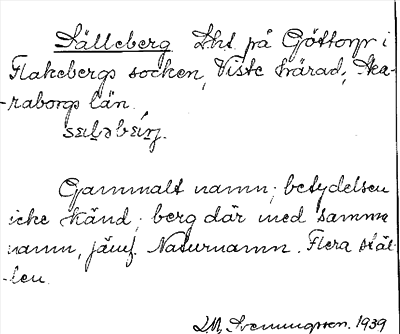 Sälleberg Lht på Göttorp i
Flakebergs socken, Viste härad, Ska-
-raborgs län.
Gammalt namn; betydelsen
icke känd; berg där med samma
namn, jämf. Naturnamn. Flera stäl-
-len.
Svenungsson. 1939